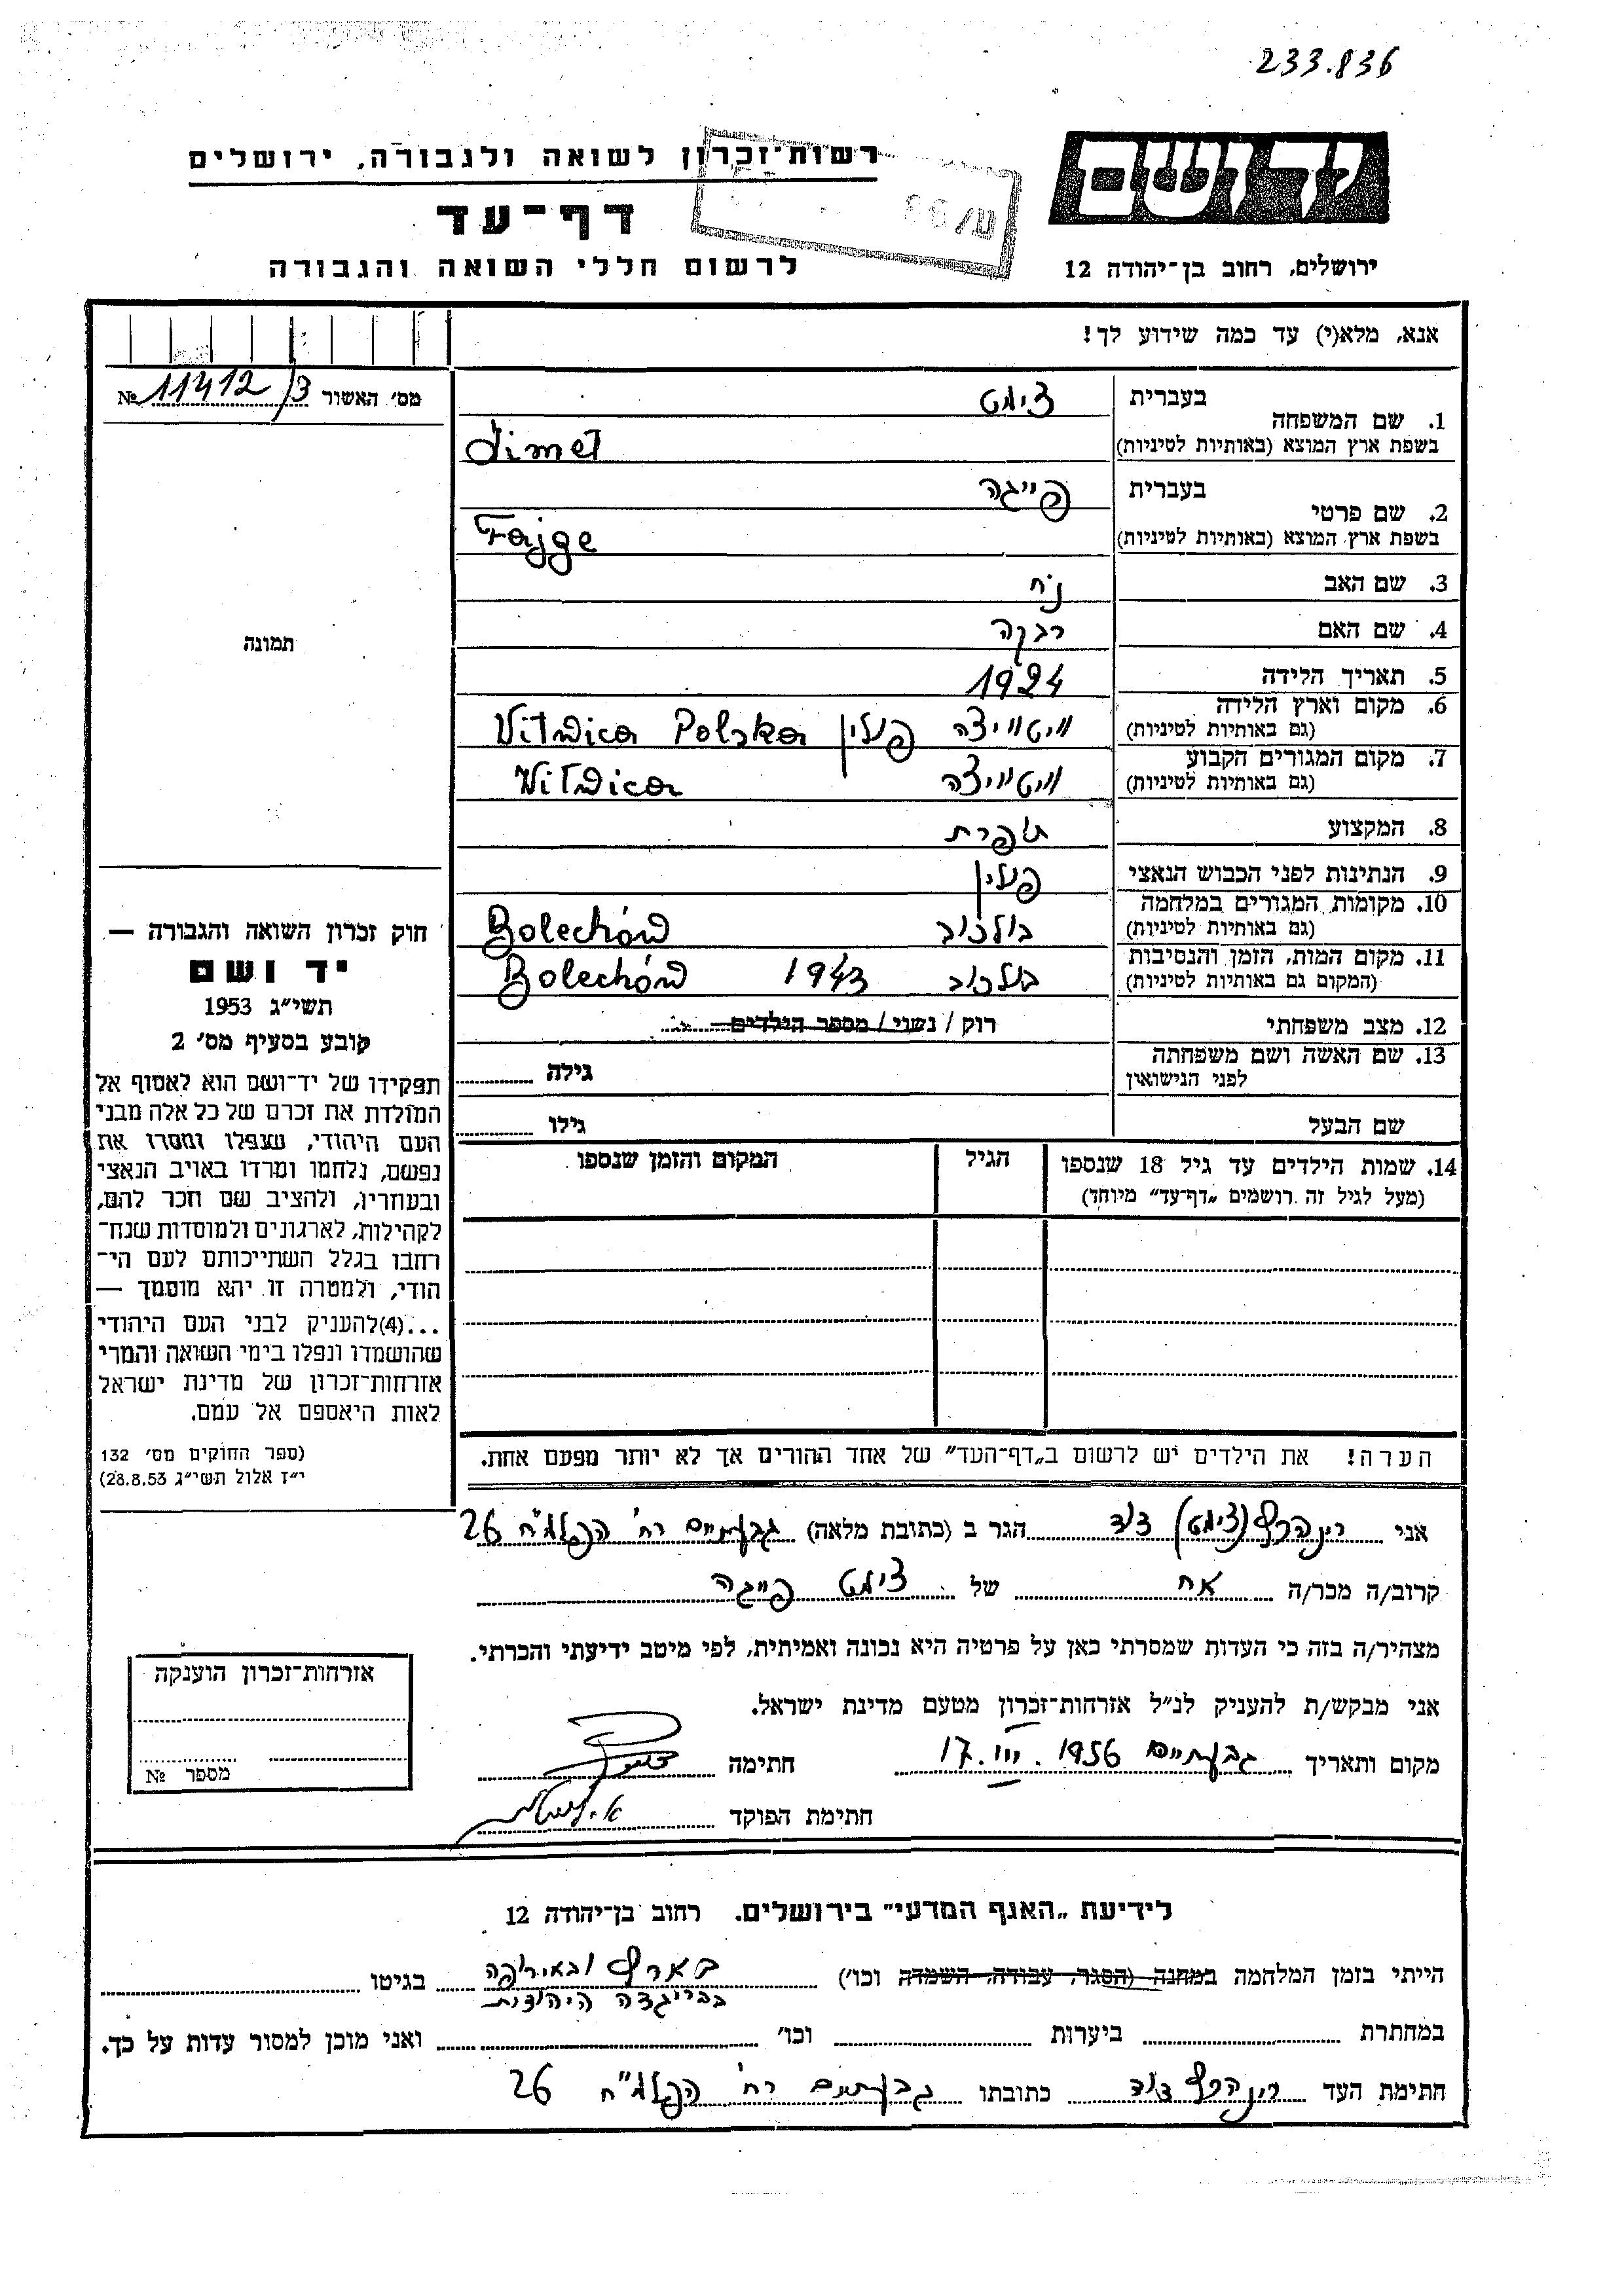 233.836
יד ושם
רשות־זכרון לשואה ולגבורה, ירושלים
דף־עד
לרשום חללי השואה והגבורה
ירושלים, רחוב בן־יהודה 12
אנא, מלא(י) עד כמה שידוע לך!
מס׳ האשור 11412/3 №
1. שם המשפחה
בעברית צימט
בשפת ארץ המוצא (באותיות לטיניות) Zimet
2. שם פרטי
בעברית פייגה
בשפת ארץ המוצא (באותיות לטיניות) Fajge
3. שם האב נח
4. שם האם רבקה
5. תאריך הלידה 1924
6. מקום וארץ הלידה
(גם באותיות לטיניות) וויטוויצה פולין Vitwica Polska
7. מקום המגורים הקבוע
(גם באותיות לטיניות) וויטוויצה Vitwica
8. המקצוע תופרת
9. הנתינות לפני הכבוש הנאצי פולין
10. מקומות המגורים במלחמה
(גם באותיות לטיניות) בולכוב Bolechów
11. מקום המות, הזמן והנסיבות
(המקום גם באותיות לטיניות) בולכוב 1943 Bolechów
12. מצב משפחתי רוק / נשוי / מספר הילדים
13. שם האשה ושם משפחתה
לפני הנישואין גילה
שם הבעל גילו
14. שמות הילדים עד גיל 18 שנספו
(מעל לגיל זה רושמים „דף־עד” מיוחד)
הגיל
המקום והזמן שנספו
הערה! את הילדים יש לרשום ב„דף־העד” של אחד ההורים אך לא יותר מפעם אחת.
תמונה
חוק זכרון השואה והגבורה —
יד ושם
תשי״ג 1953
קובע בסעיף מס׳ 2
תפקידו של יד־ושם הוא לאסוף אל
המולדת את זכרם של כל אלה מבני
העם היהודי, שנפלו ומסרו את
נפשם, נלחמו ומרדו באויב הנאצי
ובעוזריו, ולהציב שם וזכר להם,
לקהילות, לארגונים ולמוסדות שנח־
רבו בגלל השתייכותם לעם הי־
הודי, ולמטרה זו יהא מוסמך —
...(4)להעניק לבני העם היהודי
שהושמדו ונפלו בימי השואה והמרי
אזרחות־זכרון של מדינת ישראל
לאות היאספם אל עמם.
(ספר החוקים מס׳ 132
י״ז אלול תשי״ג 28.8.53)
אני רינהרץ (צימט) דוד הגר ב (כתובת מלאה) גבעתיים רח׳ הפלמ״ח 26
קרוב/ה מכר/ה אח של צימט פייגה
מצהיר/ה בזה כי העדות שמסרתי כאן על פרטיה היא נכונה ואמיתית, לפי מיטב ידיעתי והכרתי.
אני מבקש/ת להעניק לנ״ל אזרחות־זכרון מטעם מדינת ישראל.
מקום ותאריך גבעתיים 17.III.1956 חתימה
חתימת הפוקד
אזרחות־זכרון הוענקה
מספר №
לידיעת „האגף המדעי” בירושלים. רחוב בן־יהודה 12
הייתי בזמן המלחמה במחנה (הסגר, עבודה, השמדה וכו׳) בארץ ובאירופה בגיטו
בבריגדה היהודית
במחתרת ביערות וכו׳ ואני מוכן למסור עדות על כך.
חתימת העד רינהרץ דוד כתובתו גבעתיים רח׳ הפלמ״ח 26